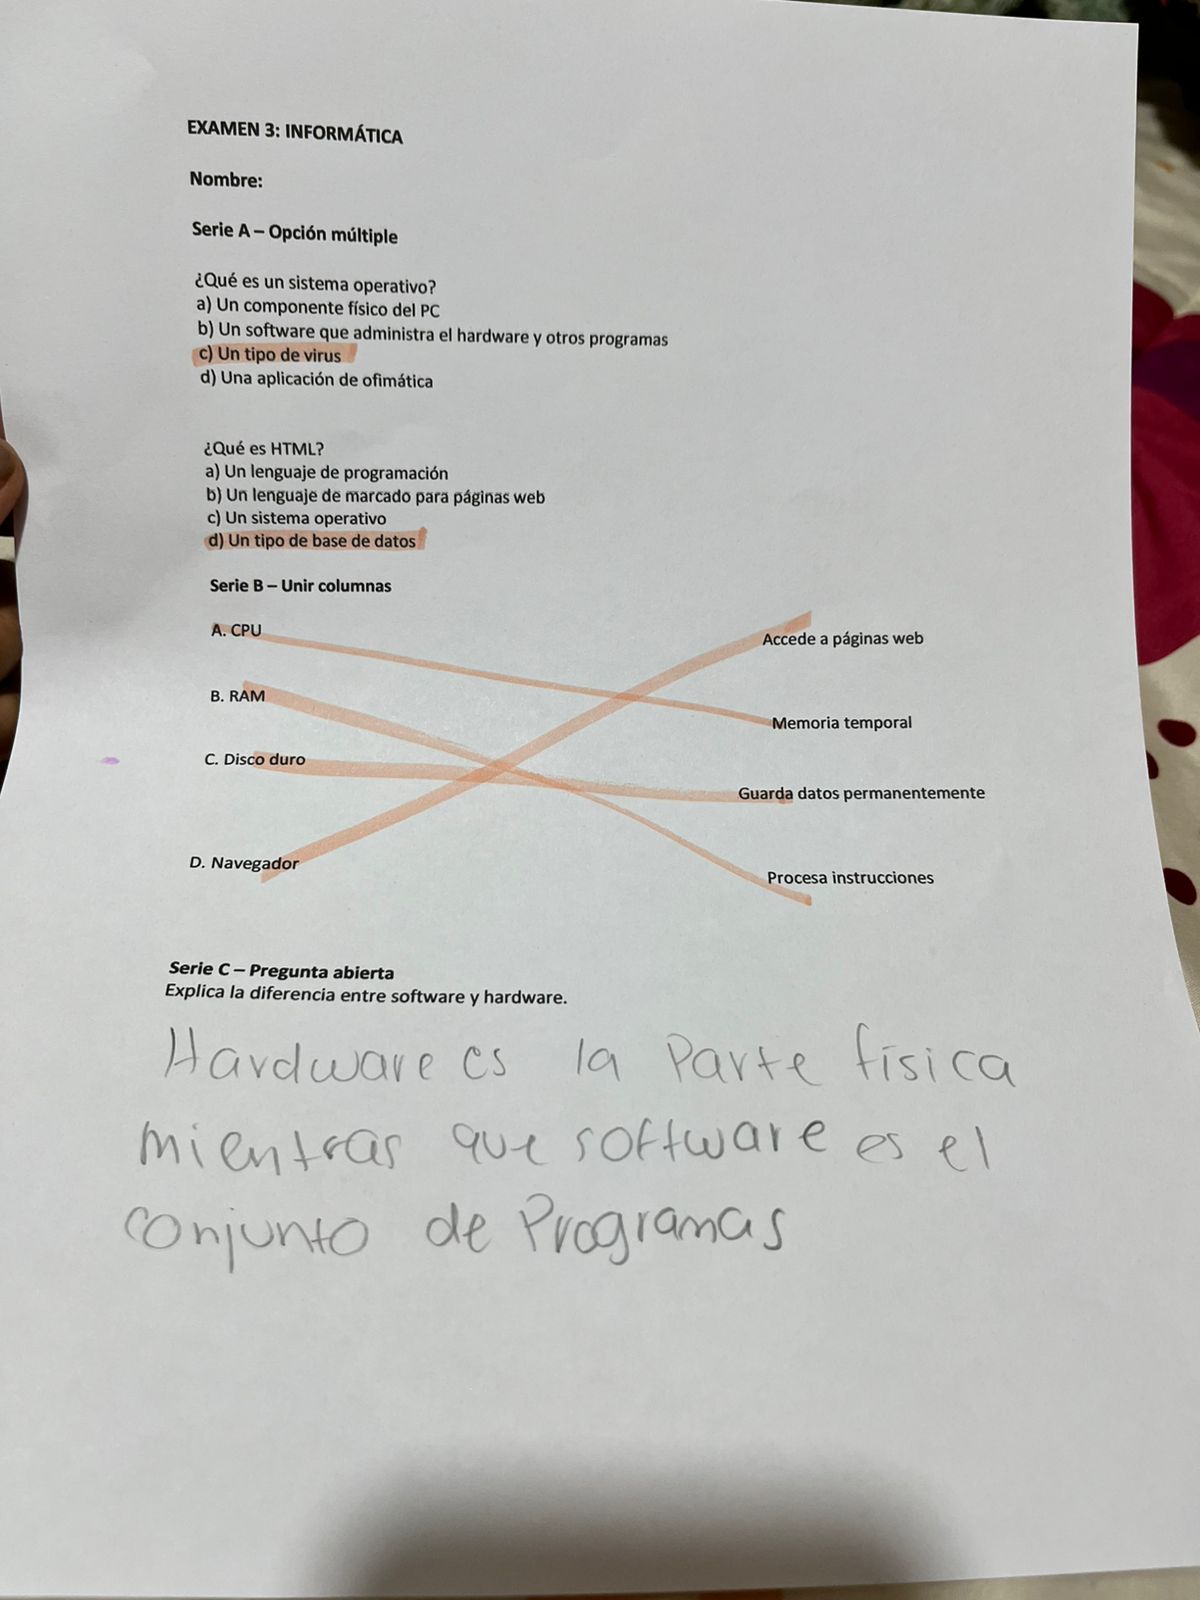 EXAMEN 3: INFORMÁTICA
Nombre:
Serie A – Opción múltiple
¿Qué es un sistema operativo?
a) Un componente físico del PC
b) Un software que administra el hardware y otros programas
c) Un tipo de virus
d) Una aplicación de ofimática
¿Qué es HTML?
a) Un lenguaje de programación
b) Un lenguaje de marcado para páginas web
c) Un sistema operativo
d) Un tipo de base de datos
Serie B – Unir columnas
A. CPU
Accede a páginas web
B. RAM
Memoria temporal
C. Disco duro
Guarda datos permanentemente
D. Navegador
Procesa instrucciones
Serie C – Pregunta abierta
Explica la diferencia entre software y hardware.
Hardware es la Parte física
mientras que software es el
conjunto de Programas